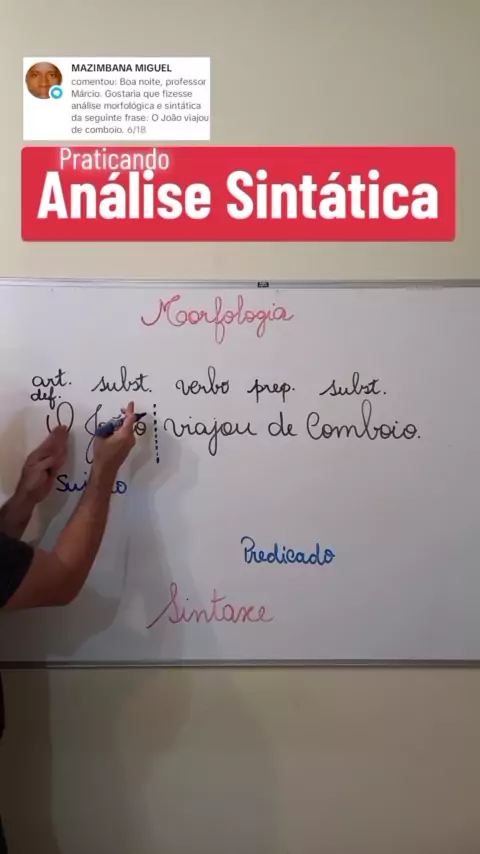 MAZIMBANA MIGUEL
comentou: Boa noite, professor
Márcio. Gostaria que fizesse
análise morfológica e sintática
da seguinte frase: O João viajou
de comboio. 6/18
Praticando
Análise Sintática
Morfologia
art. subst. verbo prep. subst.
def.
O João viajou de Comboio.
Predicado
Sintaxe